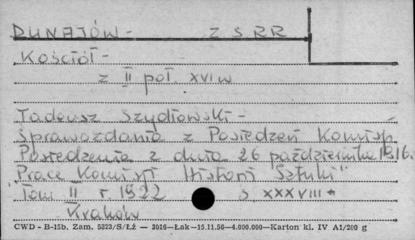 DUNAJÓW - ZSRR
Kościół -
z II poł XVI w
Tadeusz Szydłowski -
Sprawozdania z Posiedzeń Komisp
Posiedzenia z dnia 26 październiku 1916.
"Prace Komisji Historii Sztuki"
Tom II r 1922 s XXXVIII
Kraków
CWD - B-15b. Zam. 5323/S/Łż — 3016—Łak—15.11.56—4.000.000—Karton kl. IV A1/200 g